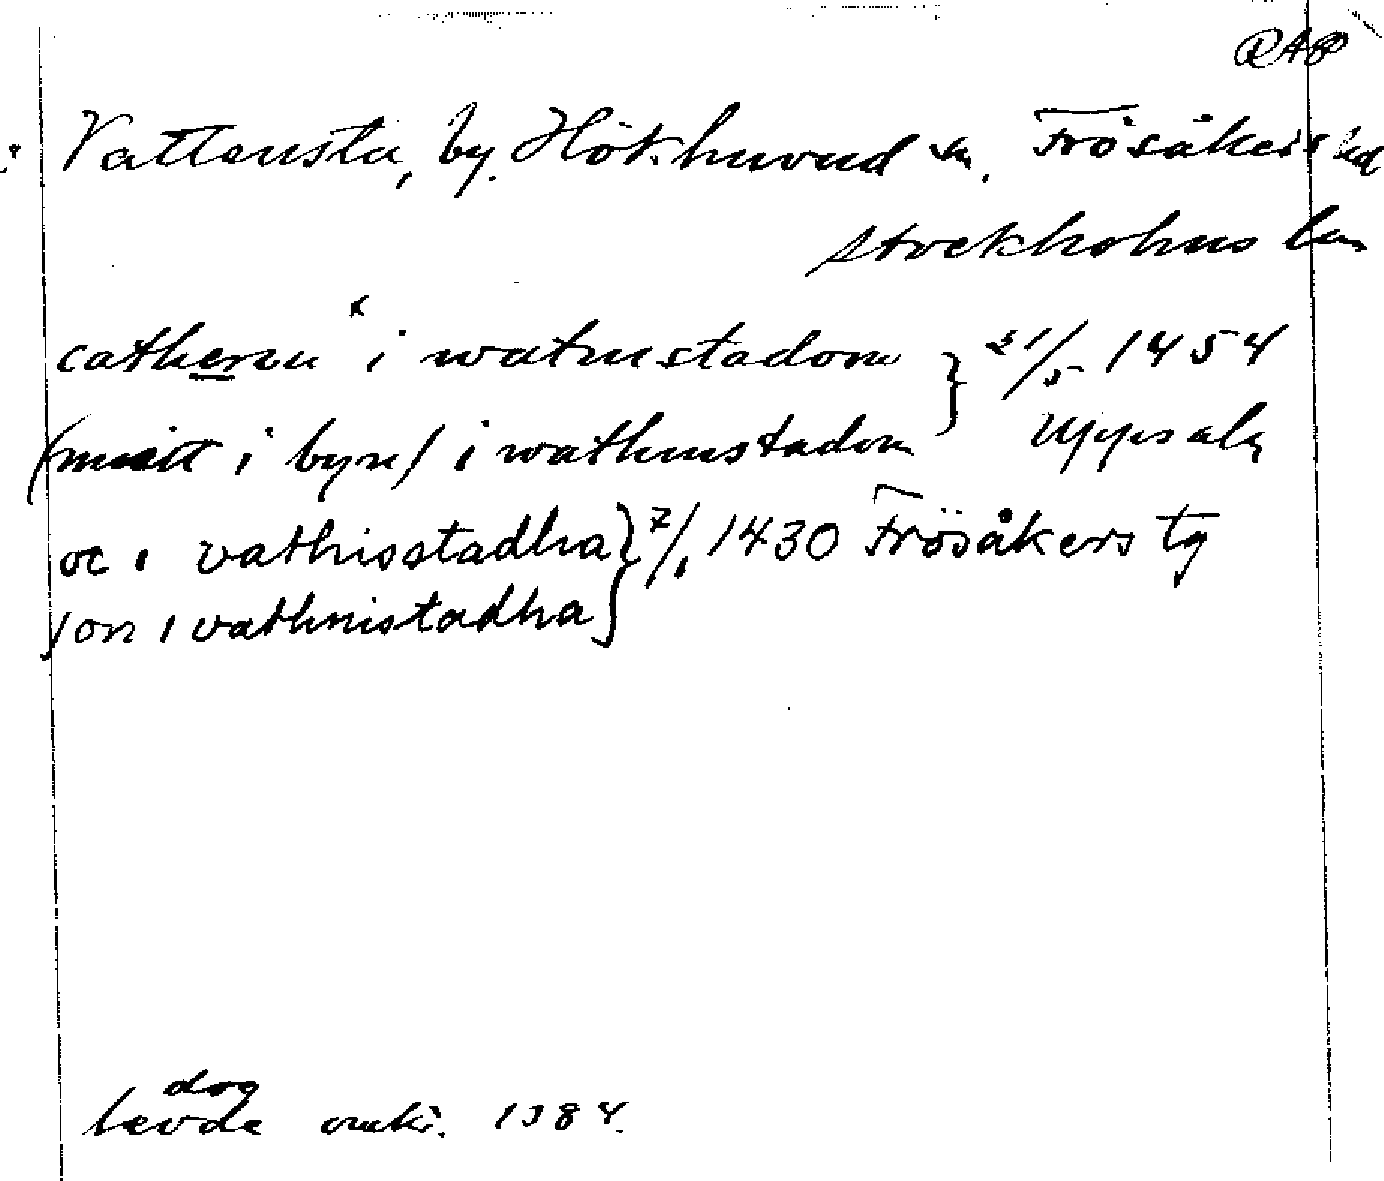 RAP
Vattensta, by. Hökhuvud sn. Frösåkers hd
Stockholms län
catherin x i watnustadom } 21/5 1454
(mitt i byn) i wathnustadom Uppsala
oc i vathisstadha } 7/1 1430 Frösåkers tg
jon i vathnistadha
dog
levde omkr. 1384.